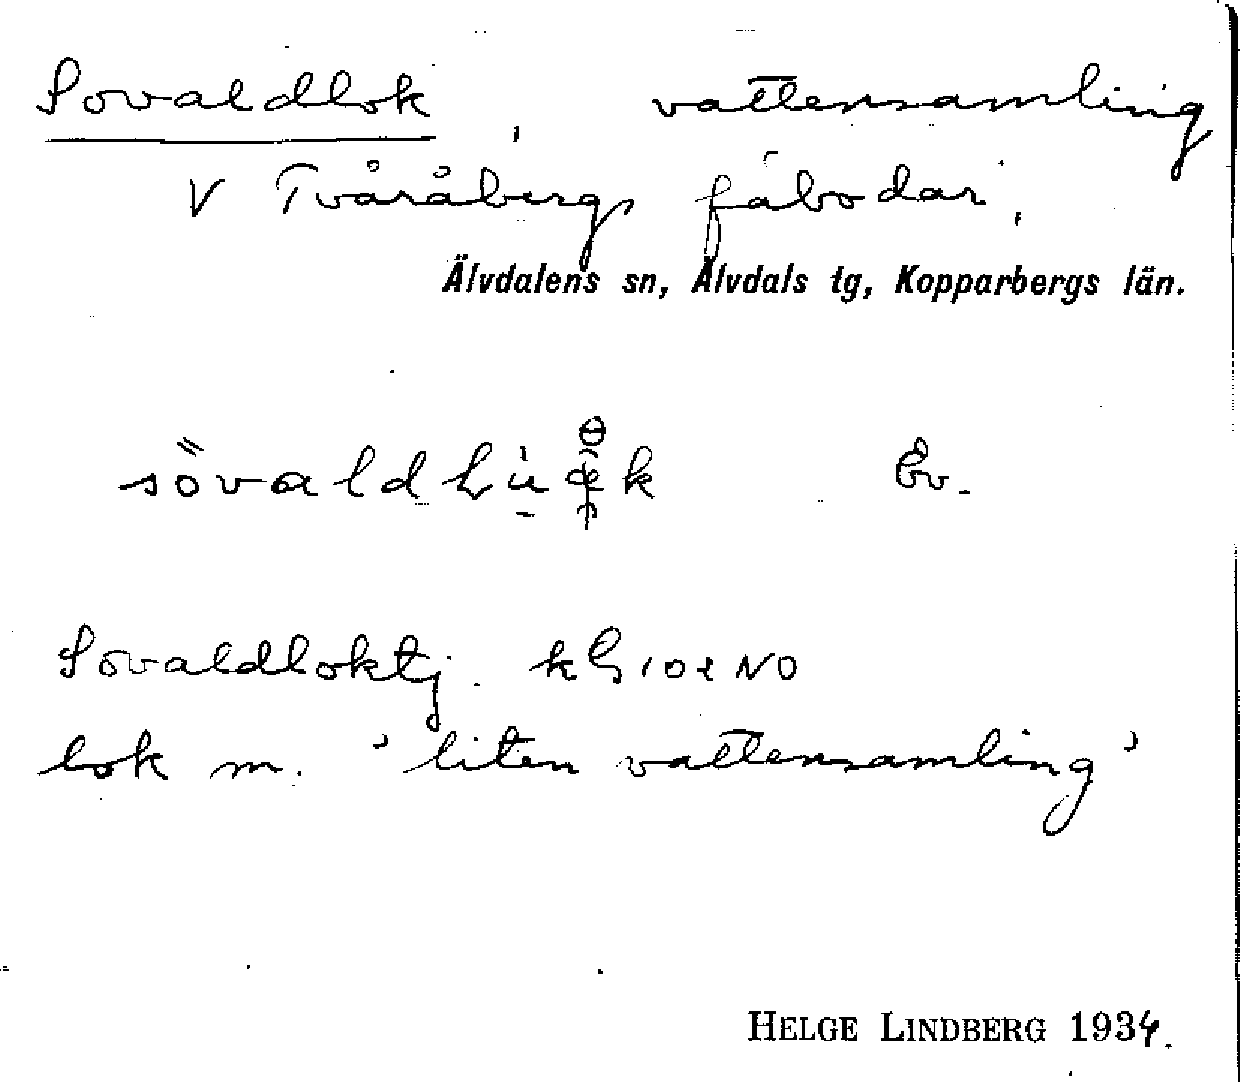 Sovaldlok, vattensamling
V Tvåråbergs fäbodar,
Älvdalens sn, Älvdals tg, Kopparbergs län.
Sovaldloktj. kG 102 NO
lok m. 'liten vattensamling'
HELGE LINDBERG 1934.